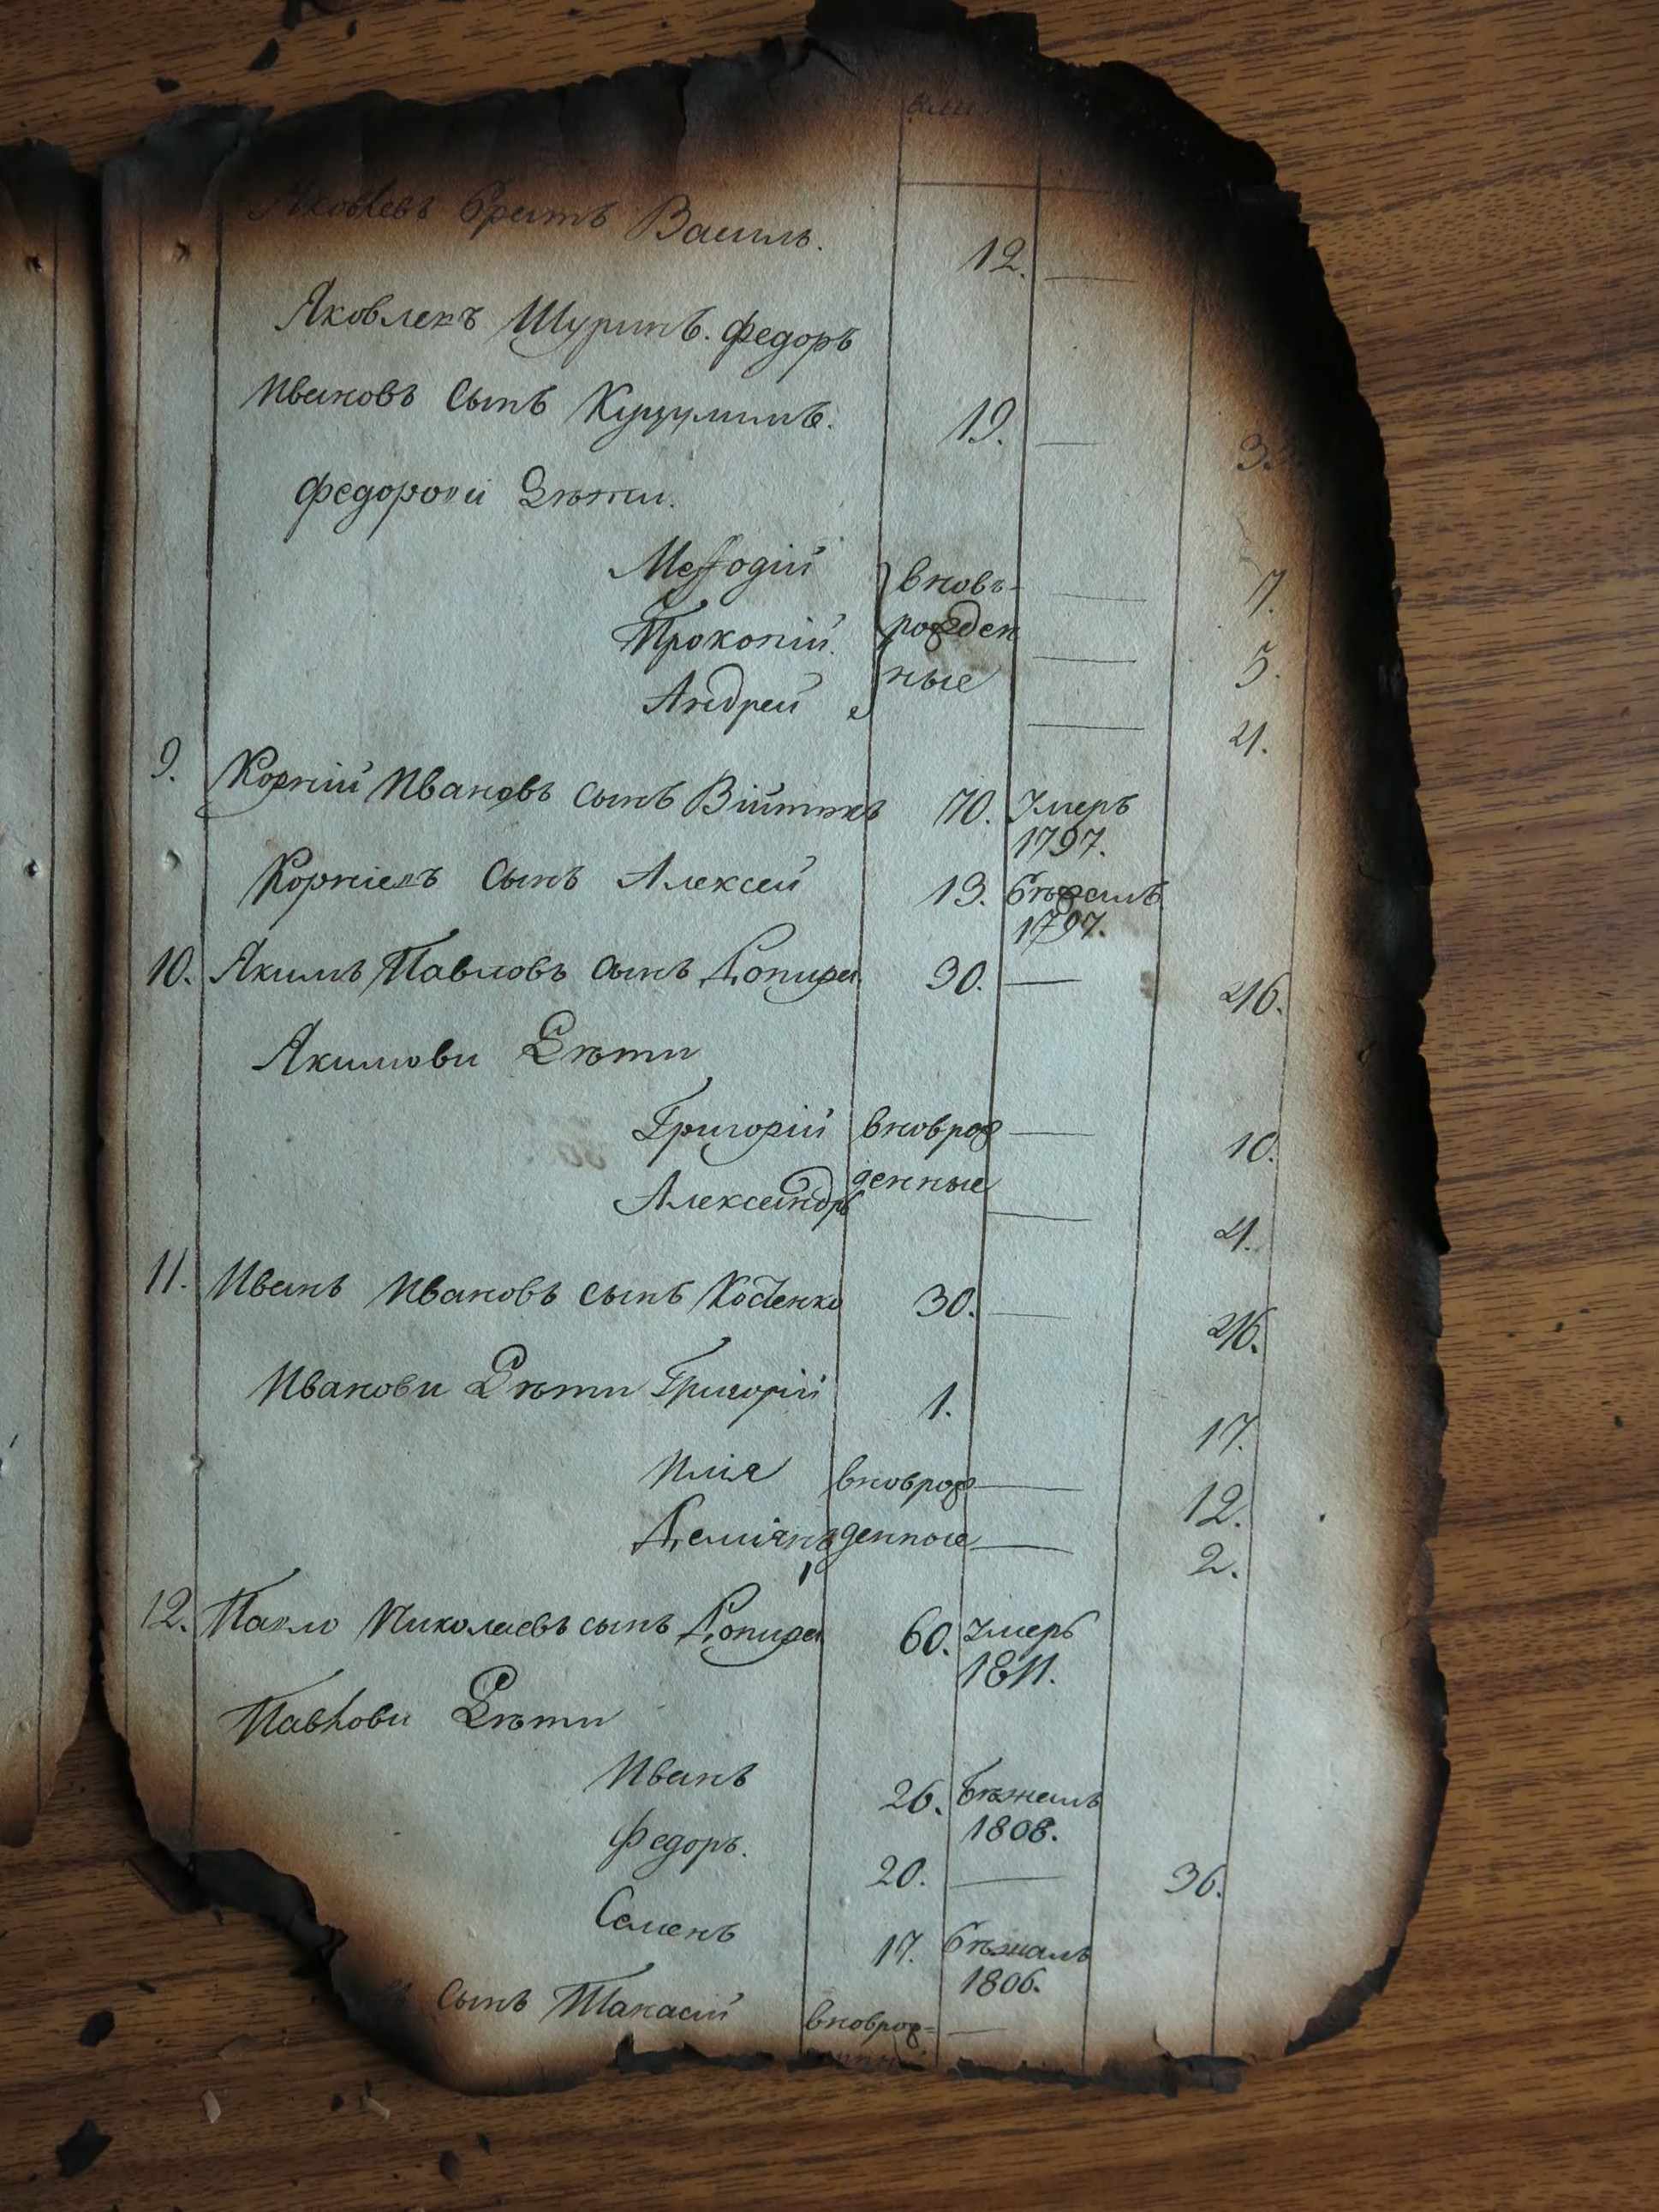 Яковлевъ братъ Василь. 12. —
Яковлевъ Шуринъ. Федоръ
Ивановъ сынъ 19. —
Федорови Дѣти.
Мефодій вновь- — 7.
Прокопій. рожден — 5.
Андрей ные — 4.
9. Корній Ивановъ сынъ 70. Умеръ
1797.
Корніевъ сынъ Алексей 13. бѣжалъ
1797.
10. Акимъ Павловъ сынъ Допира 30. — 46.
Акимови Дѣти
Григорій вноврож — 10.
Александръ денные — 4.
11. Иванъ Ивановъ сынъ Коденко 30. — 46.
Иванови Дѣти Григорій 1. 17.
Илія вноврож — 12.
Деміянъ денные — 2.
12. Павло Николаевъ сынъ Допира 60. Умеръ
1811.
Павлови Дѣти
Иванъ 26. бѣжалъ
1808.
Федоръ. 20. — 36.
Семенъ 17. бѣжалъ
1806.
сынъ Танасій вноврож= —